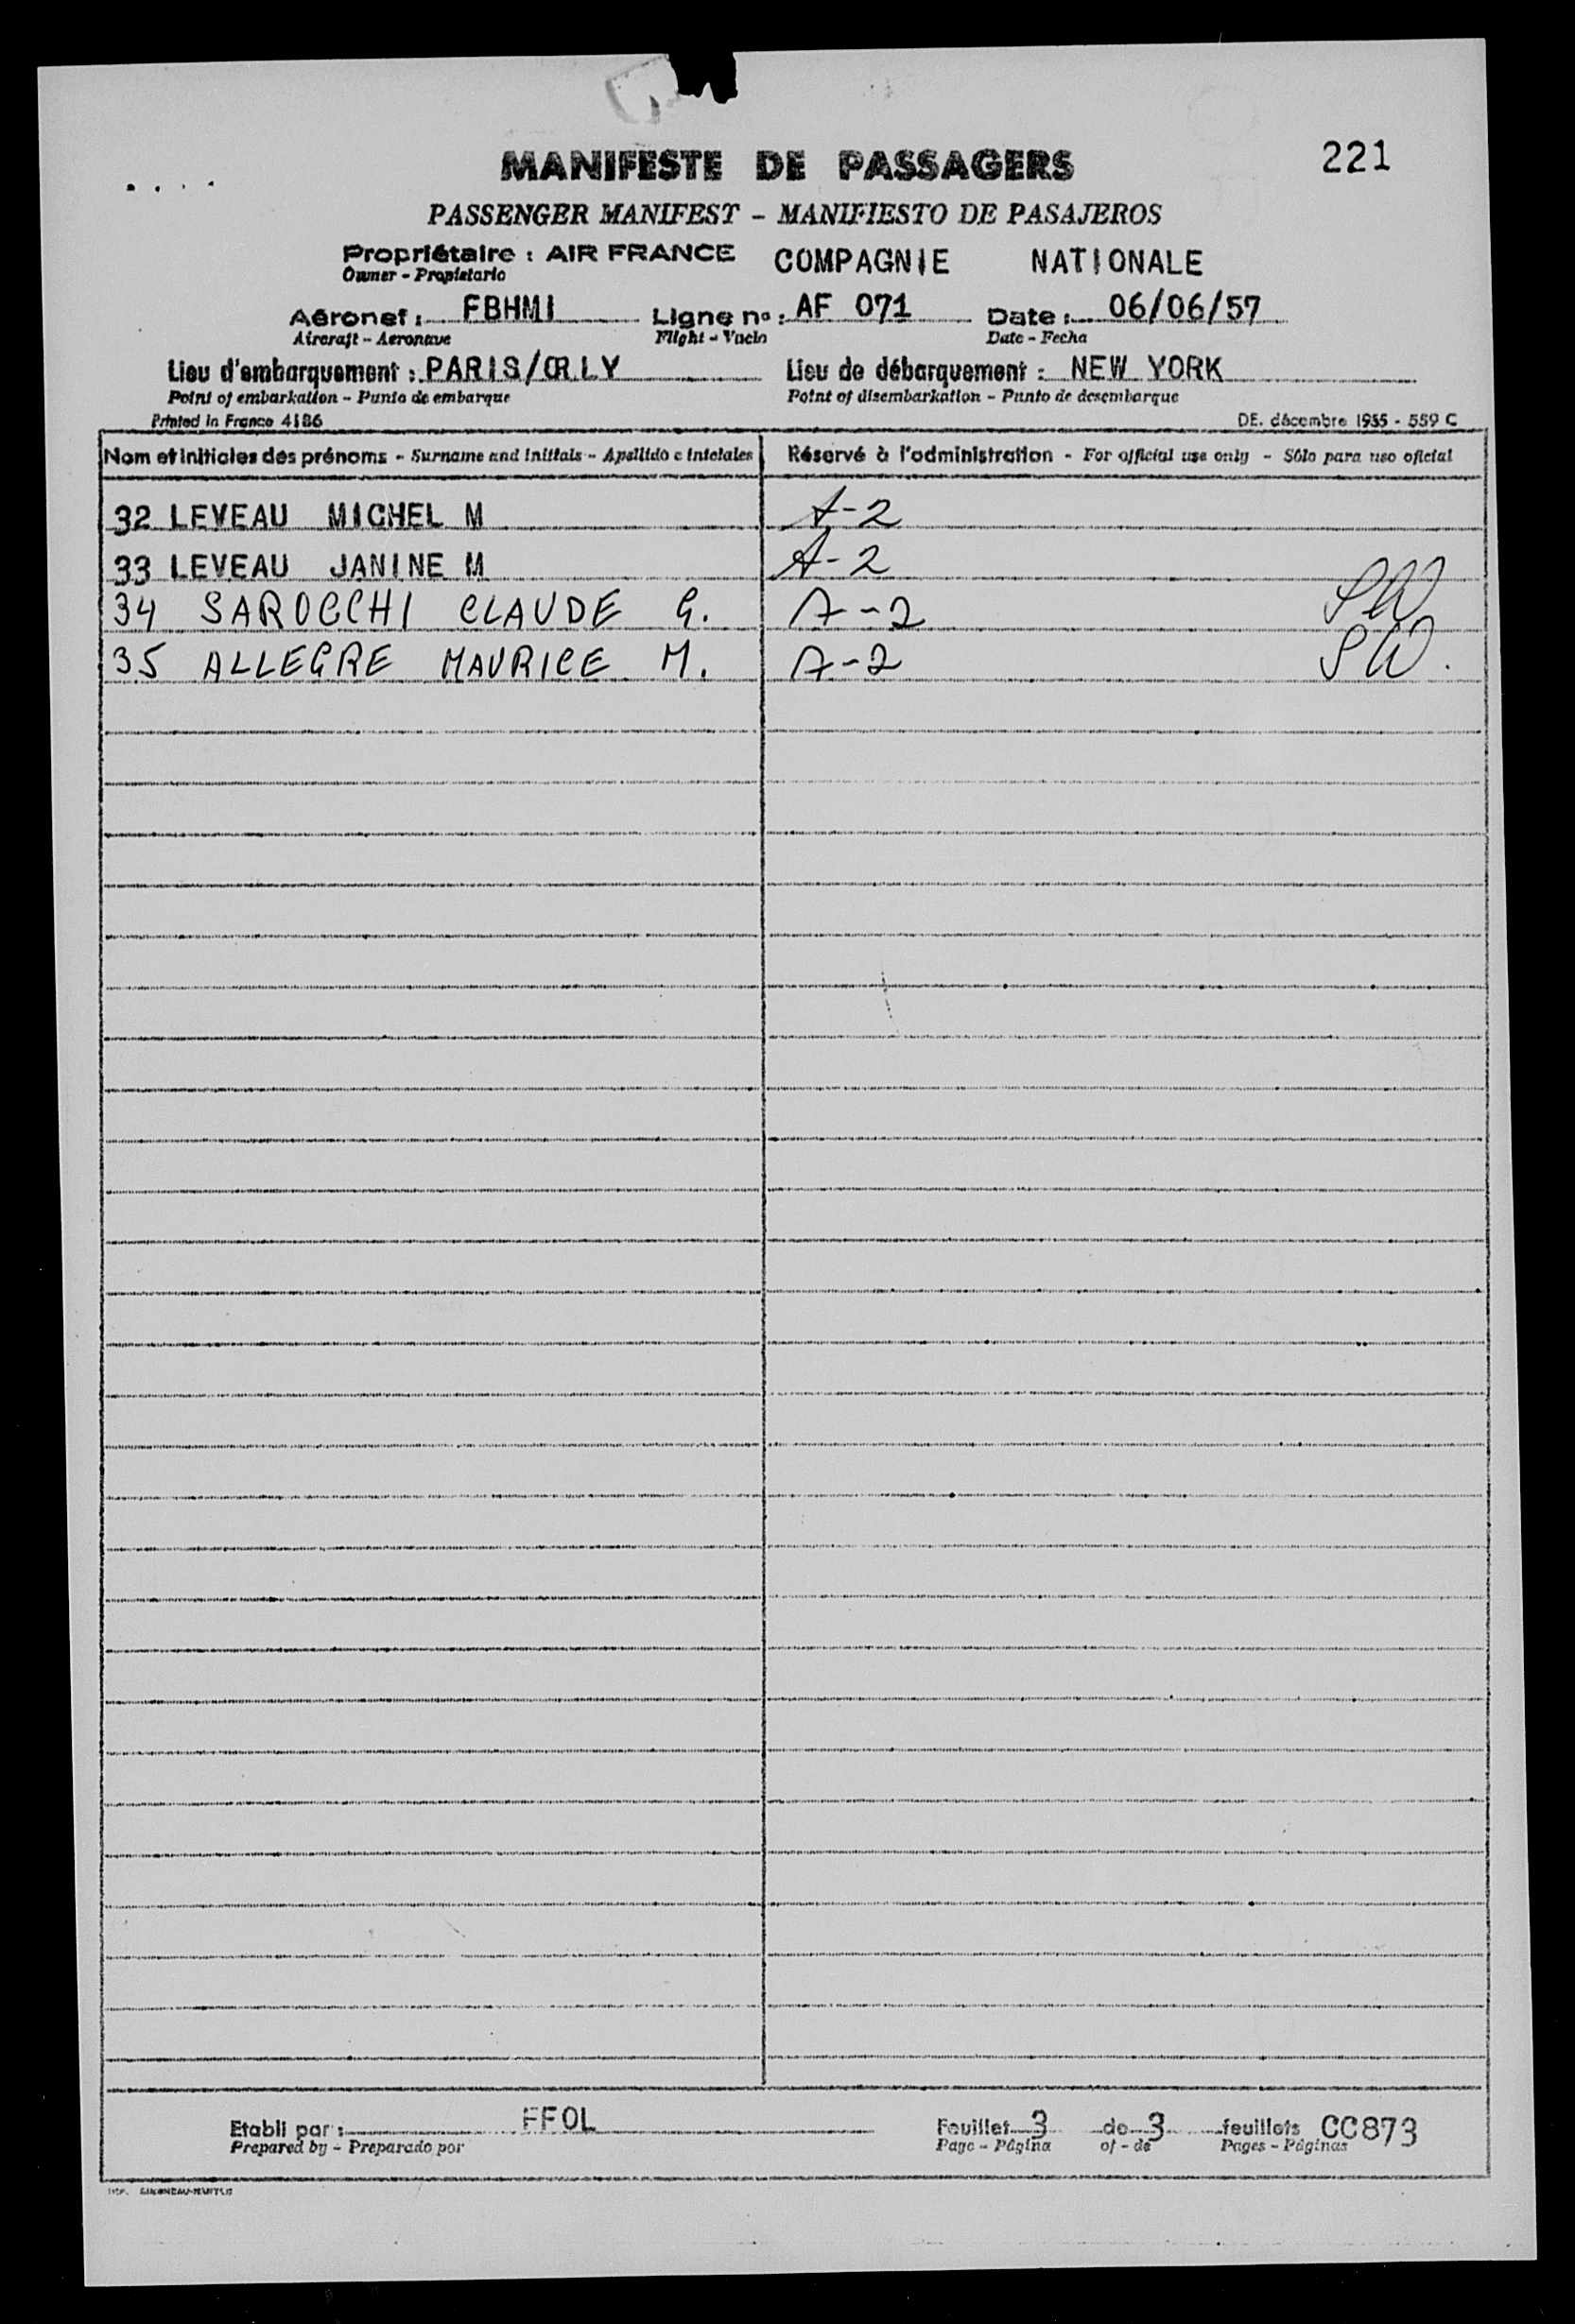 221
MANIFESTE DE PASSAGERS
PASSENGER MANIFEST - MANIFIESTO DE PASAJEROS
Propriétaire : AIR FRANCE COMPAGNIE NATIONALE
Owner - Propietario
Aéronef : FBHMI Ligne no : AF 071 Date : 06/06/57
Aircraft - Aeronave Flight - Vuelo Date - Fecha
Lieu d'embarquement : PARIS/ORLY Lieu de débarquement : NEW YORK
Point of embarkation - Punto de embarque Point of disembarkation - Punto de desembarque
Printed in France 4186 DE. décembre 1955 - 559 C
Nom et initiales des prénoms - Surname and initials - Apellido e iniciales Réservé à l'administration - For official use only - Sólo para uso oficial
32 LEVEAU MICHEL M A-2
33 LEVEAU JANINE M A-2
34 SAROCCHI CLAUDE G. A-2 SW
35 ALLEGRE MAURICE M. A-2 SW.
Etabli par : FFOL Feuillet 3 de 3 feuillets CC873
Prepared by - Preparado por Page - Página of - de Pages - Páginas